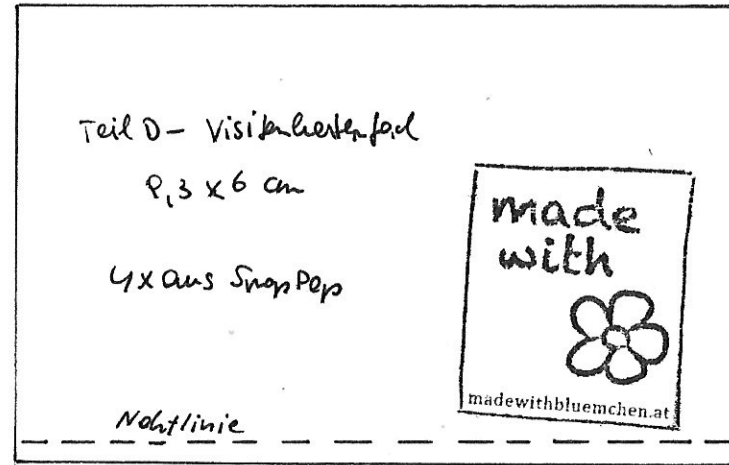 Teil D – Visitenkartenfach
x 6 cm
4x aus SnapPap
made
with
madewithbluemchen.at
Nahtlinie